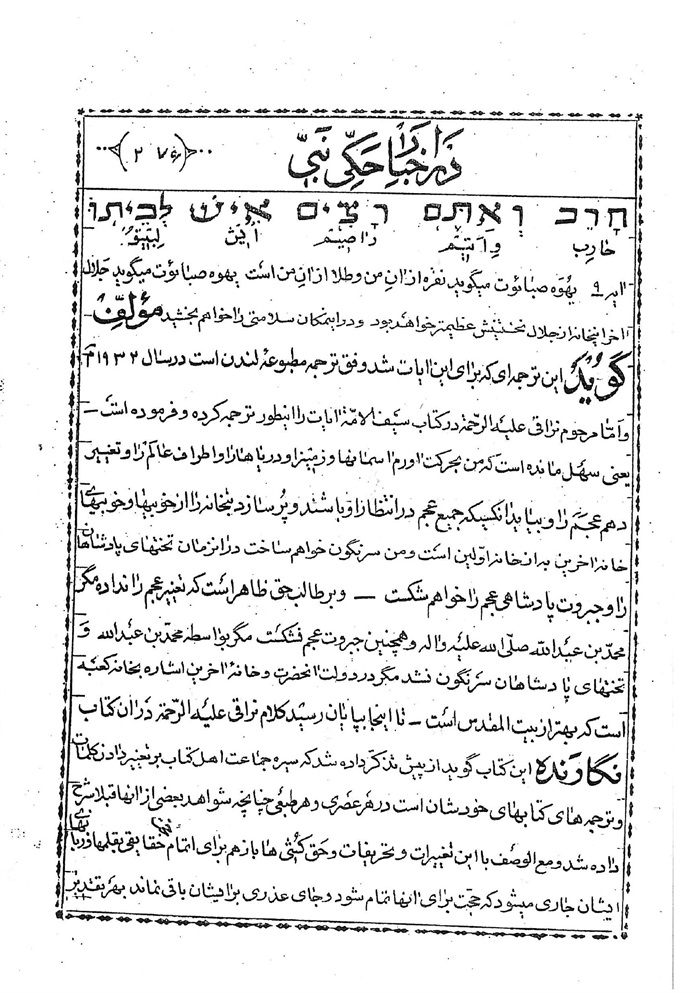 در اخبار حکّی نبیّ
(۲۷۶)
חרב ואתם רצים איש לביתו
خارِب وِاَتِیتم راصیتم ایش لِبَیتُو
ایه ۹ یهُوَه صبائوت میگوید نقره از انِ من و طلا از انِ من است یهوه صبائوت میگوید جلال
اخر اینخانه از جلال نخستینش عظیمتر خواهد بود و در اینمکان سلامتی را خواهم بخشید مؤلّف
گوید این ترجمه ای که برای این ایات شد وفق ترجمه مطبوعه لندن است در سال ۱۹۳۲ م
و امّا مرحوم نراقی علیه الرّحمة در کتاب سیف الامّة ایات را اینطور ترجمه کرده و فرموده است –
یعنی سهل مانده است که من بحرکت اورم اسمانها و زمین و دریاها را و اطراف عالم را و تغییر
دهم عجم را و بیاید انکسیکه جمیع عجم در انتظار او باشند و پر سازد بتخانه را از خوبیها و خوبیهای
خانۀ اخرین به از خانۀ اولین است و من سرنگون خواهم ساخت در انزمان تختهای پادشاهان
را و جبروت پادشاهی عجم را خواهم شکست — و بر طالب حق ظاهر است که تغییر عجم را نداده مگر
محمّد بن عبدالله صلّی الله علیه و اله و همچنین جبروت عجم نشکست مگر بواسطه محمّد بن عبدالله و
تختهای پادشاهان سرنگون نشد مگر در دولت انحضرت و خانۀ اخرین اشاره بخانه کعبه
است که بهتر از بیت المقدس است – تا اینجا بپایان رسید کلام نراقی علیه الرّحمة در ان کتاب
نگارنده این کتاب گوید از پیش تذکر داده شد که سیره جماعت اهل کتاب بر تغییر دادن کلمات
و ترجمه های کتابهای خودشان است در هر عصری و هر طبعی چنانچه شواهد بعضی از انها قبلا شرح
داده شد و مع الوصف با این تغییرات و تحریفات و حق کشی ها باز هم برای اتمام حقایقی بقلمها و زبانهای
ایشان جاری میشود که حجّت برای انها تمام شود و جای عذری برای ایشان باقی نماند بهر تقدیر